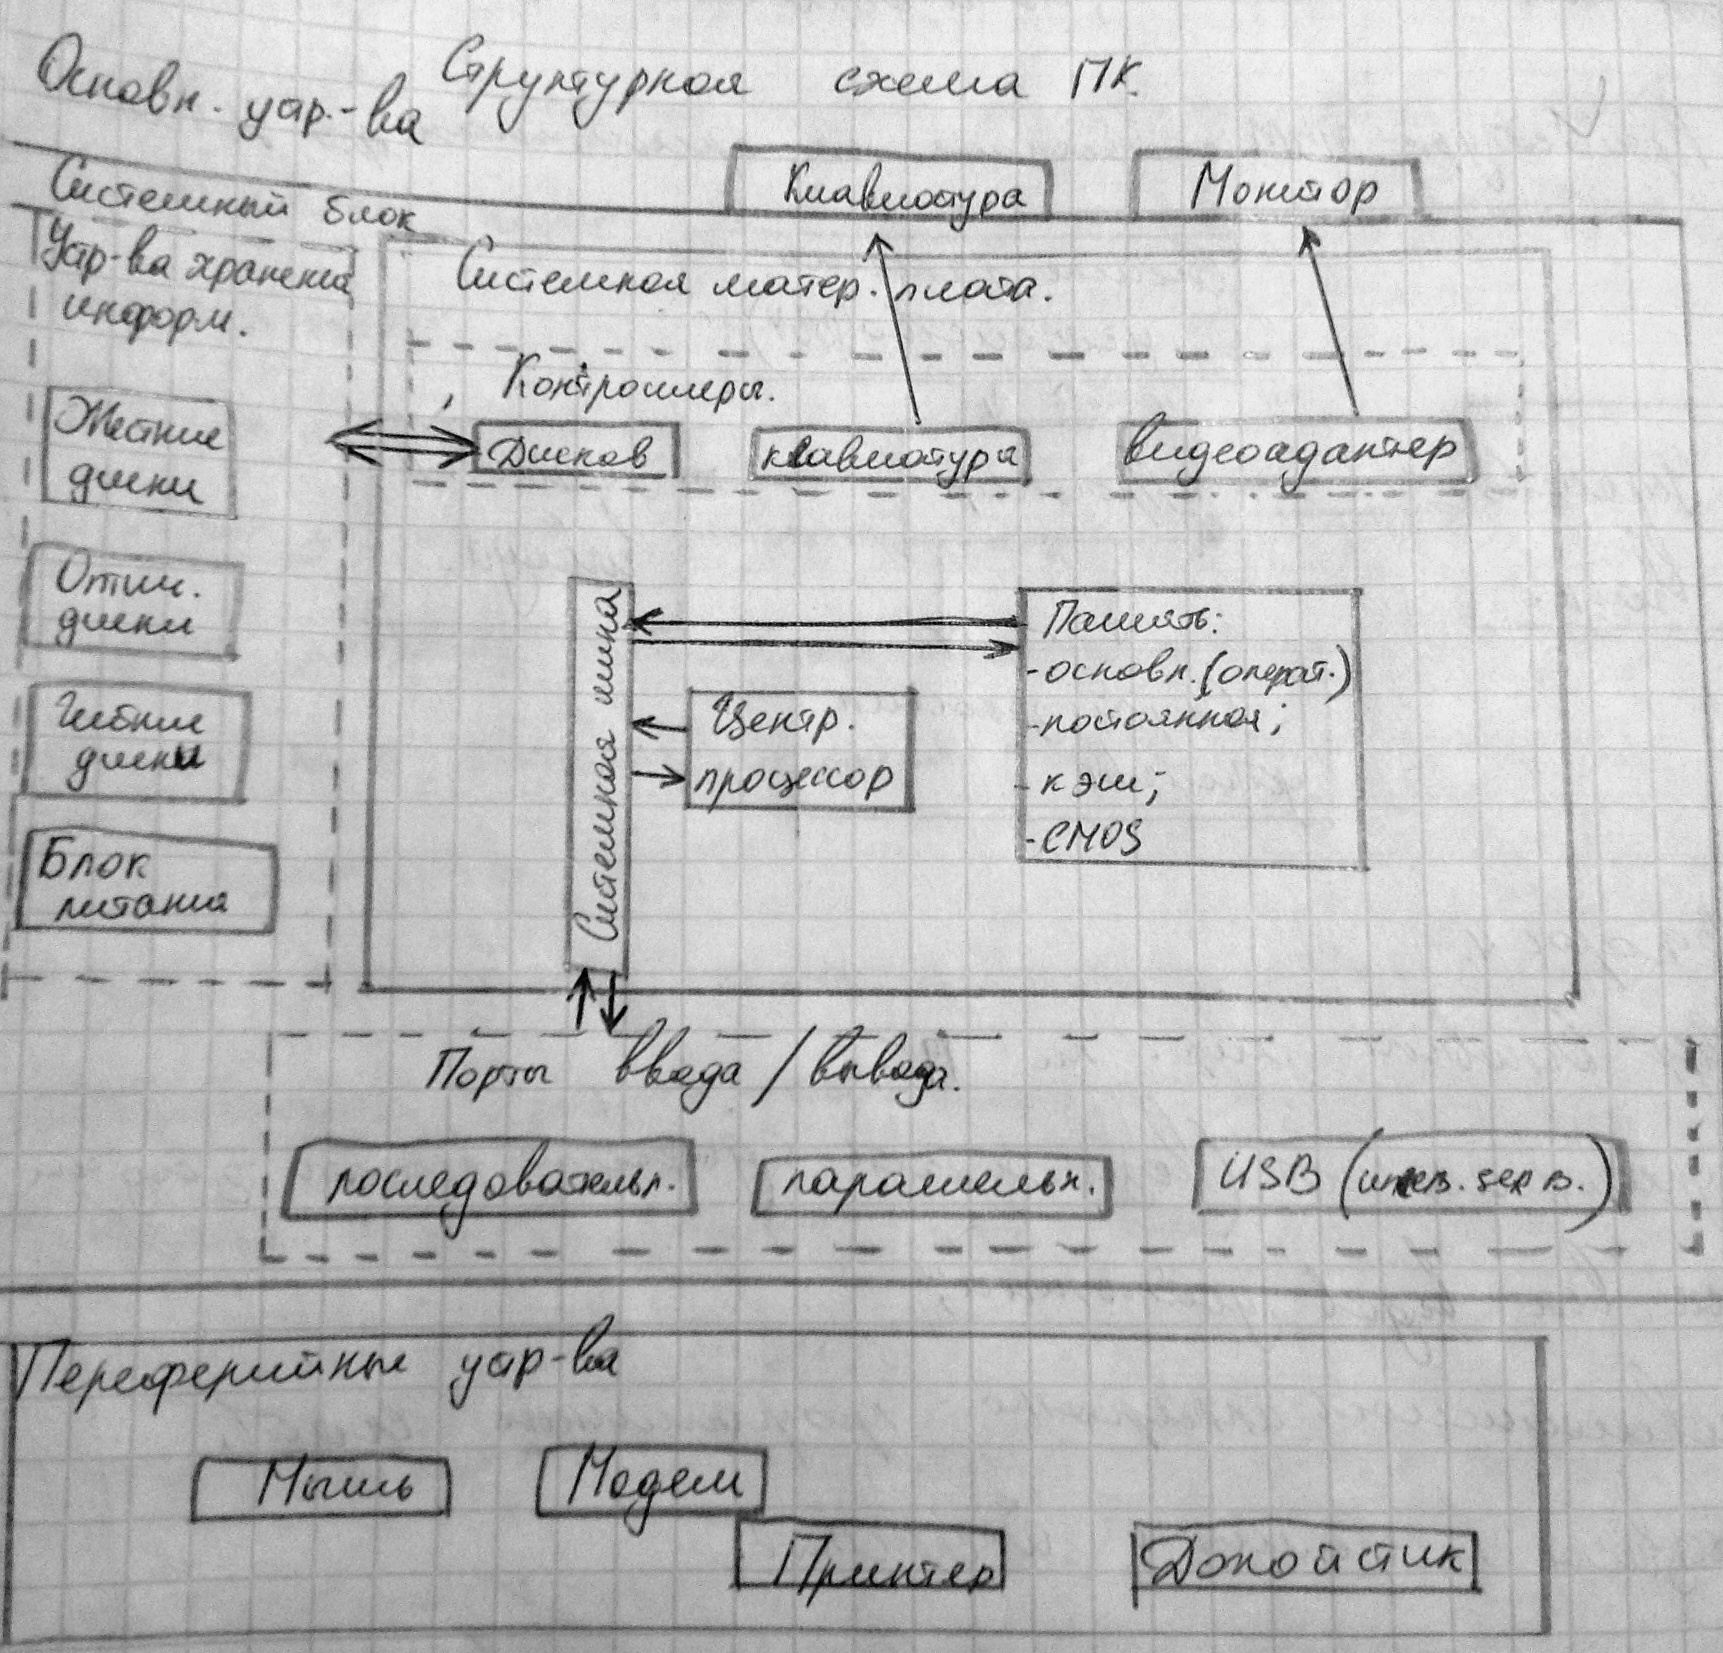 Структурная схема ПК.
Основн. устр.-ва
Клавиатура
Монитор
Системный блок
Устр-ва хранения
информ.
Системная матер. плата.
Контроллеры.
Дисков
клавиатура
видеоадаптер
Жесткие
диски
Оптич.
диски
Гибкие
диски
Блок
питания
Системная шина
Центр.
процессор
Память:
-основн. (операт.)
-постоянная;
-кэш;
-CMOS
Порты ввода / вывода.
последовательн.
параллельн.
USB
Переферийные устр-ва
Мышь
Модем
Принтер
Джойстик